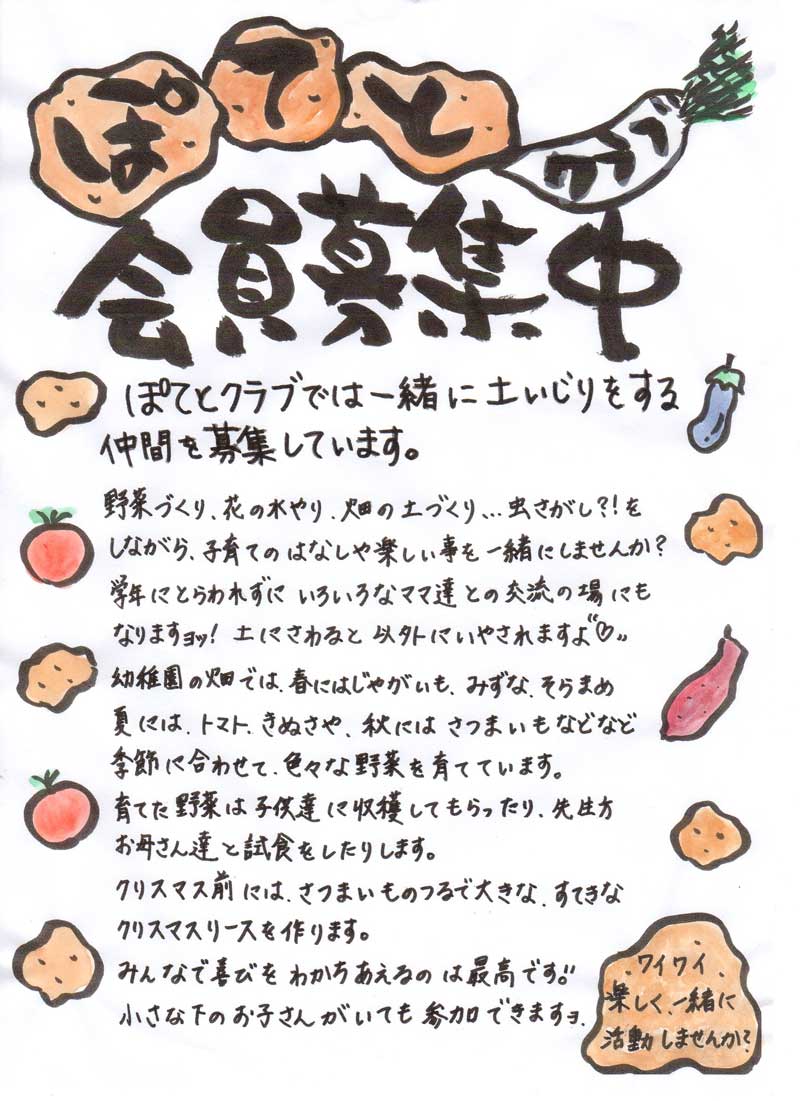 ぽてとクラブ
会員募集中
ぽてとクラブでは一緒に土いじりをする
仲間を募集しています。
野菜づくり、花の水やり、畑の土づくり…虫さがし?!を
しながら、子育てのはなしや楽しい事を一緒にしませんか?
学年にとらわれずにいろいろなママ達との交流の場にも
なりますョッ! 土にさわると以外にいやされますよ♡
幼稚園の畑では、春にはじゃがいも、みずな、そらまめ
夏には、トマト、きぬさや、秋にはさつまいもなどなど
季節に合わせて、色々な野菜を育てています。
育てた野菜は子供達に収穫してもらったり、先生方
お母さん達と試食をしたりします。
クリスマス前には、さつまいものつるで大きな、すてきな
クリスマスリースを作ります。
みんなで喜びをわかちあえるのは最高です!!
小さな下のお子さんがいても参加できますョ.
ワイワイ
楽しく、一緒に
活動しませんか?